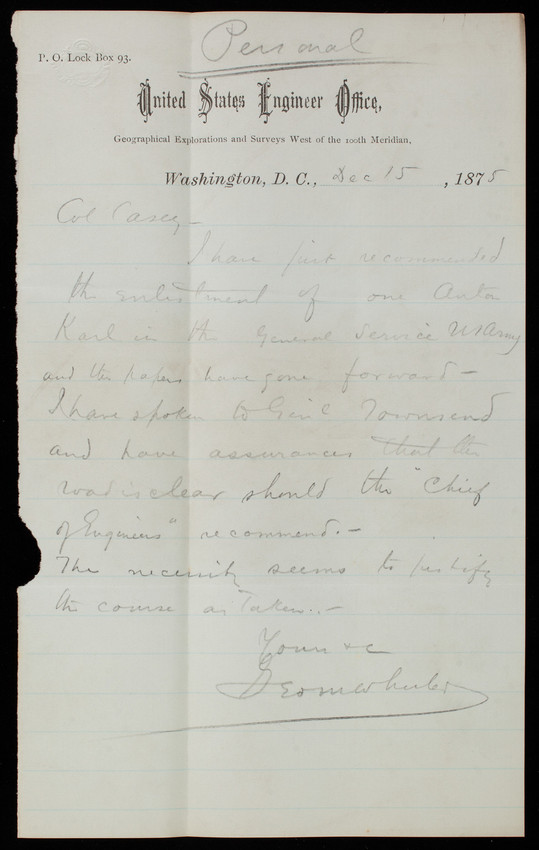 Personal
P. O. Lock Box 93.
United States Engineer Office,
Geographical Explorations and Surveys West of the 100th Meridian,
Washington, D. C., Dec 15, 1875
Col Casey—
I have just recommended
the enlistment of one Anton
Karl in the General Service US Army
and the papers have gone forward—
I have spoken to Genl Townsend
and have assurances that the
road is clear should the "Chief
of Engineers" recommend.—
The necessity seems to justify
the course as taken..—
Yours &c
Geo M Wheeler